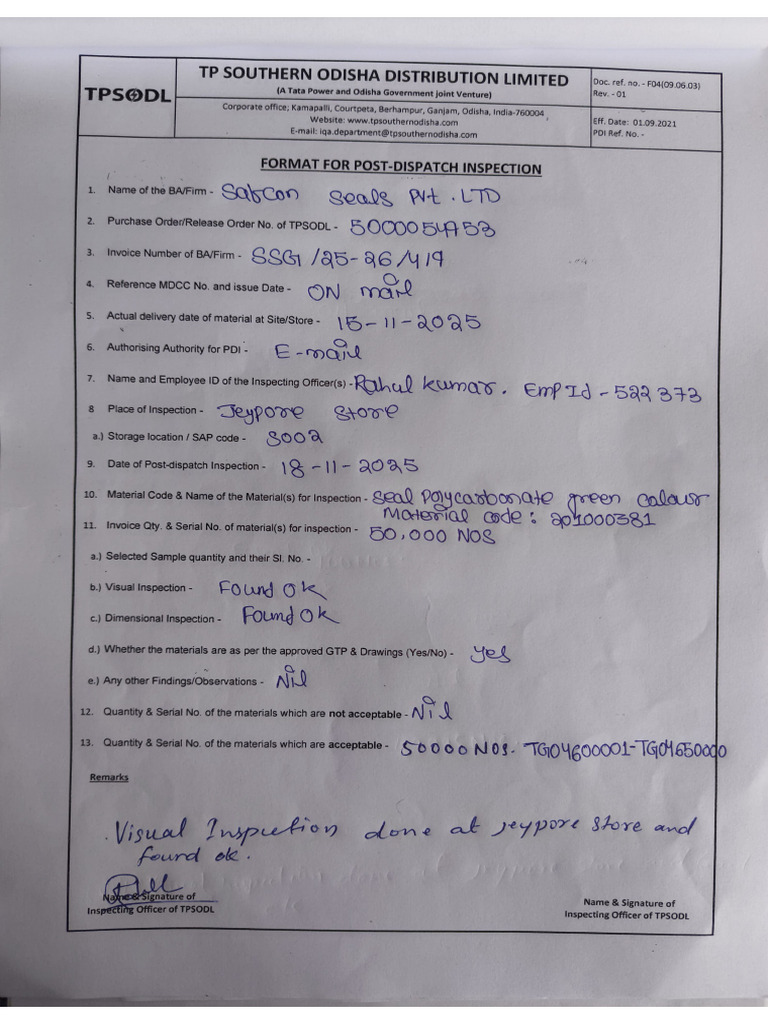 TPSODL
TP SOUTHERN ODISHA DISTRIBUTION LIMITED
(A Tata Power and Odisha Government joint Venture)
Corporate office; Kamapalli, Courtpeta, Berhampur, Ganjam, Odisha, India-760004
Website: www.tpsouthernodisha.com
E-mail: iqa.department@tpsouthernodisha.com
Doc. ref. no. - F04(09.06.03)
Rev. - 01
Eff. Date: 01.09.2021
PDI Ref. No. -
FORMAT FOR POST-DISPATCH INSPECTION
1. Name of the BA/Firm - Safcon Seals Pvt. LTD
2. Purchase Order/Release Order No. of TPSODL - 5000054753
3. Invoice Number of BA/Firm - SSG/25-26/419
4. Reference MDCC No. and issue Date - ON mail
5. Actual delivery date of material at Site/Store - 15-11-2025
6. Authorising Authority for PDI - E-mail
7. Name and Employee ID of the Inspecting Officer(s) - Rahul kumar. Emp Id - 522373
8 Place of Inspection - Jeypore Store
a.) Storage location / SAP code - S002
9. Date of Post-dispatch Inspection - 18-11-2025
10. Material Code & Name of the Material(s) for Inspection - Seal Polycarbonate green colour
Material code: 201000381
11. Invoice Qty. & Serial No. of material(s) for inspection - 50,000 NOS
a.) Selected Sample quantity and their Sl. No. -
b.) Visual Inspection - Found Ok
c.) Dimensional Inspection - Found Ok
d.) Whether the materials are as per the approved GTP & Drawings (Yes/No) - yes
e.) Any other Findings/Observations - Nil
12. Quantity & Serial No. of the materials which are not acceptable - Nil
13. Quantity & Serial No. of the materials which are acceptable - 50000 NOS. TG04600001-TG04650000
Remarks
Visual Inspection done at jeypore store and
found ok.
Name & Signature of
Inspecting Officer of TPSODL
Name & Signature of
Inspecting Officer of TPSODL